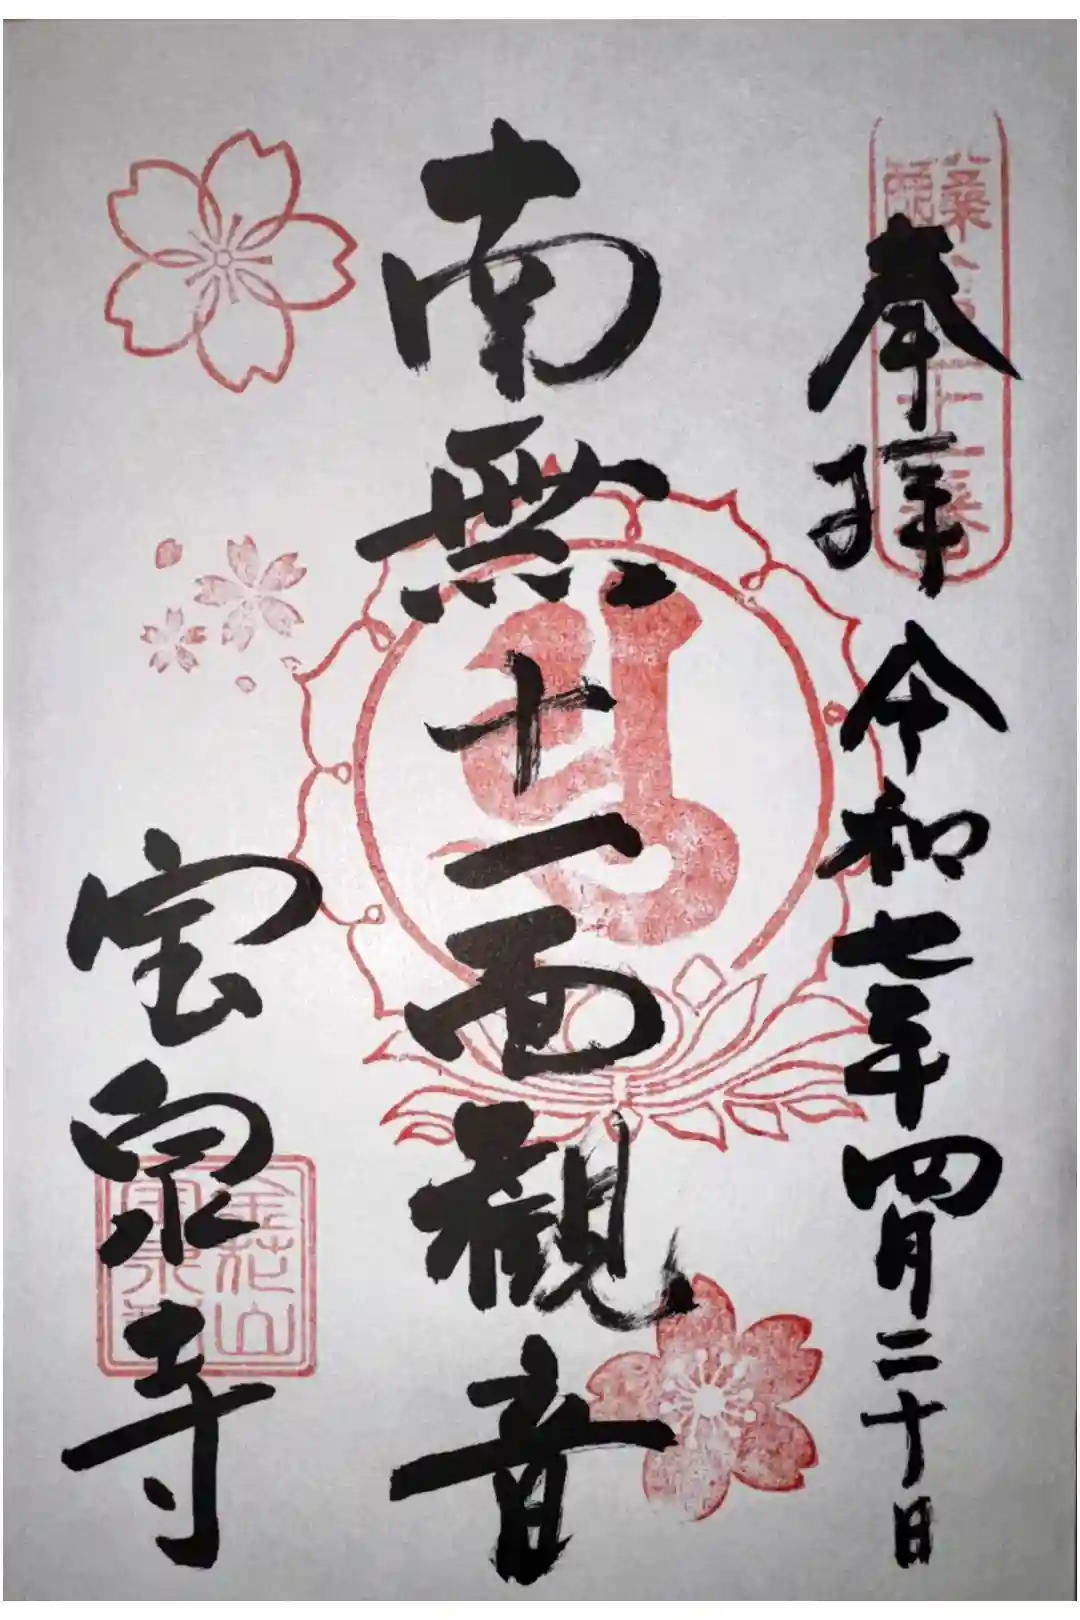 奉拝 令和七年四月二十日
南無十一面観音
宝泉寺
金花山
宝泉寺